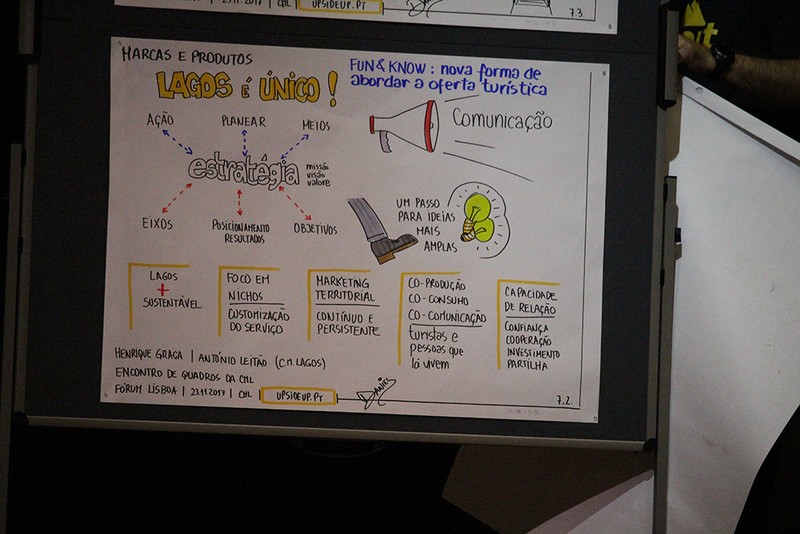 23.11.2017 | CML | UPSIDEUP.PT
7.3.
MARCAS E PRODUTOS
LAGOS É ÚNICO!
FUN & KNOW : nova forma de
abordar a oferta turística
AÇÃO
PLANEAR
MEIOS
Comunicação
estratégia
missão
visão
valore
EIXOS
POSICIONAMENTO
RESULTADOS
OBJETIVOS
UM PASSO
PARA IDEIAS
MAIS
AMPLAS
LAGOS
+
SUSTENTÁVEL
FOCO EM
NICHOS
CUSTOMIZAÇÃO
DO SERVIÇO
MARKETING
TERRITORIAL
CONTÍNUO E
PERSISTENTE
CO-PRODUÇÃO
CO-CONSUMO
CO-COMUNICAÇÃO
turistas e
pessoas que
lá vivem
CAPACIDADE
DE RELAÇÃO
CONFIANÇA
COOPERAÇÃO
INVESTIMENTO
PARTILHA
HENRIQUE GRAÇA | ANTÓNIO LEITÃO (C.M. LAGOS)
ENCONTRO DE QUADROS DA CML
FÓRUM LISBOA | 23.11.2017 | CML | UPSIDEUP.PT
7.2.